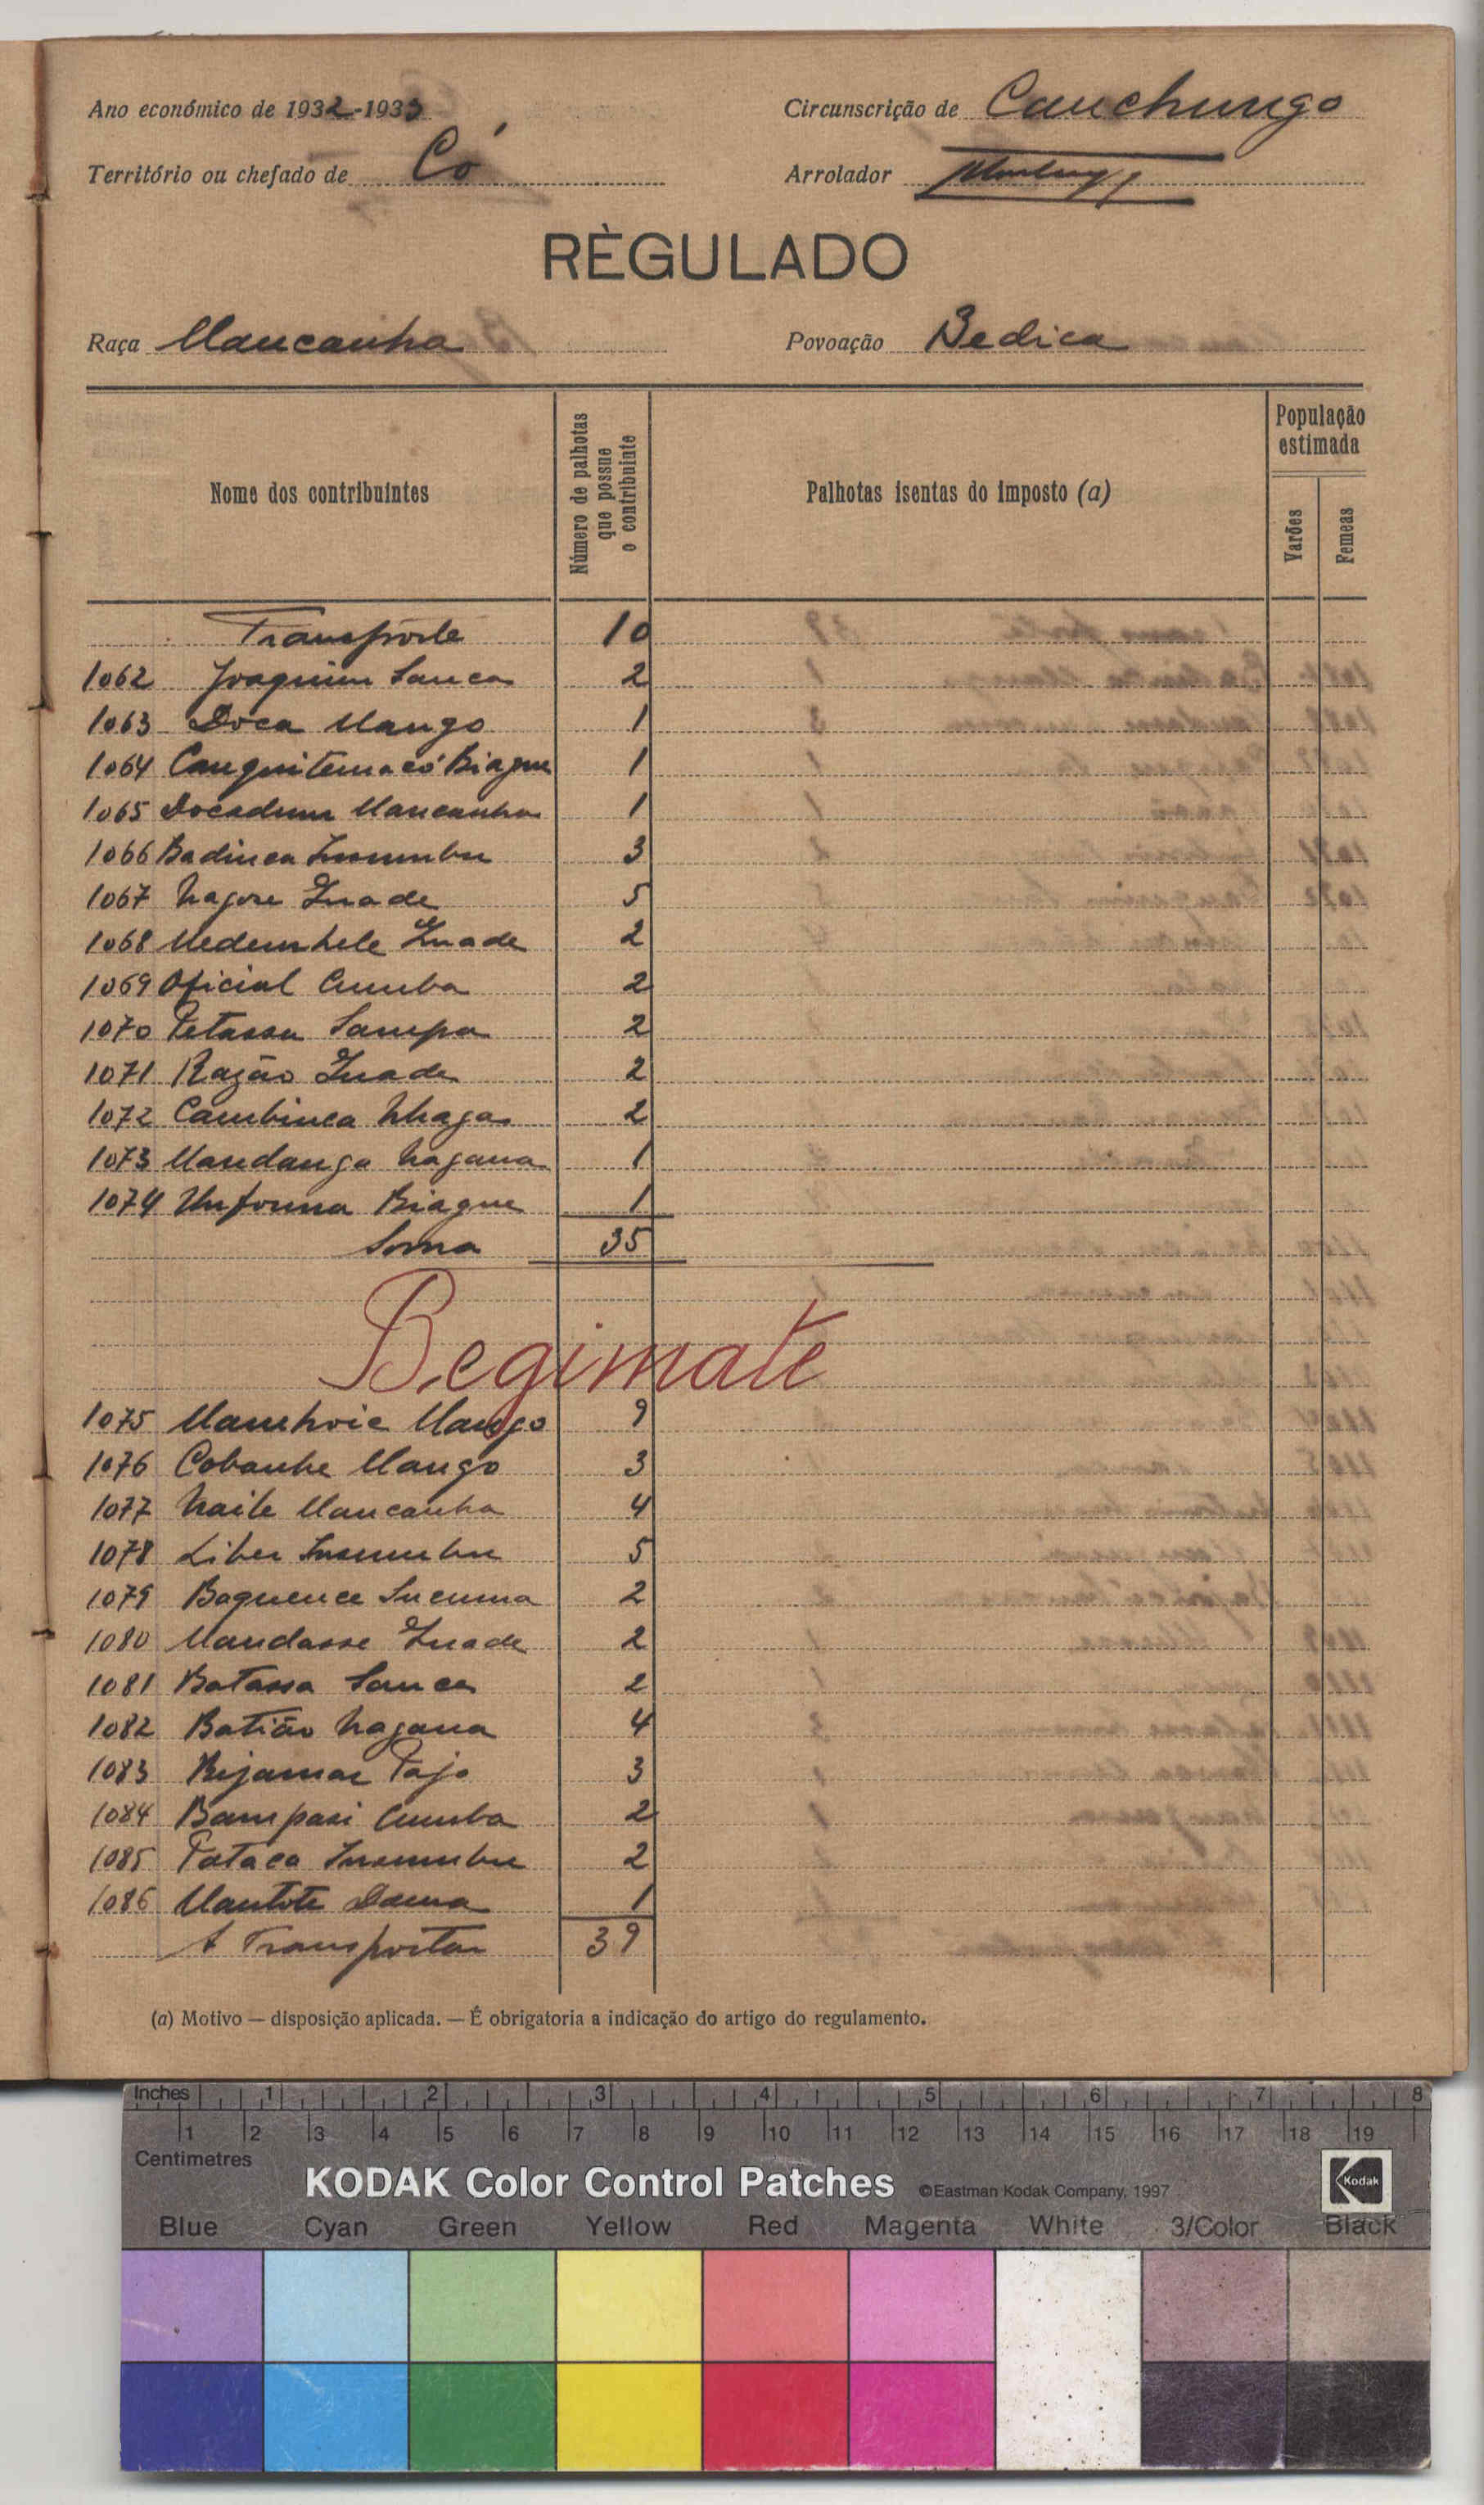 Ano económico de 1932-1933
Circunscrição de Canchungo
Território ou chefado de Có
Arrolador
RÈGULADO
Raça Mancanha
Povoação Bedica
Nome dos contribuintes
Número de palhotas que possue o contribuinte
Palhotas isentas do imposto (a)
População estimada
Varões
Femeas
Transporte 10
1062 Joaquim Sanca 2
1063 Doca Mango 1
1064 Biague 1
1065 Mancanha 1
1066 Badinca 3
1067 5
1068 2
1069 Oficial Cumba 2
1070 Petassa Sampa 2
1071 Razão 2
1072 Cambinca 2
1073 Mandanga Nagana 1
1074 Biague 1
Soma 35
Begimate
1075 Mango 9
1076 Cobanhe Mango 3
1077 Naite Mancanha 4
1078 Liber 5
1079 Baquence 2
1080 Mandasse 2
1081 Batassa Sanca 2
1082 Batião Nagana 4
1083 Bijamar 3
1084 Bampasi Cumba 2
1085 Pataca 2
1086 Mantote Dama 1
A Transportar 39
(a) Motivo — disposição aplicada. — É obrigatoria a indicação do artigo do regulamento.
Inches 1 2 3 4 5 6 7 8
1 2 3 4 5 6 7 8 9 10 11 12 13 14 15 16 17 18 19
Centimetres
KODAK Color Control Patches ©Eastman Kodak Company, 1997 Kodak
Blue Cyan Green Yellow Red Magenta White 3/Color Black